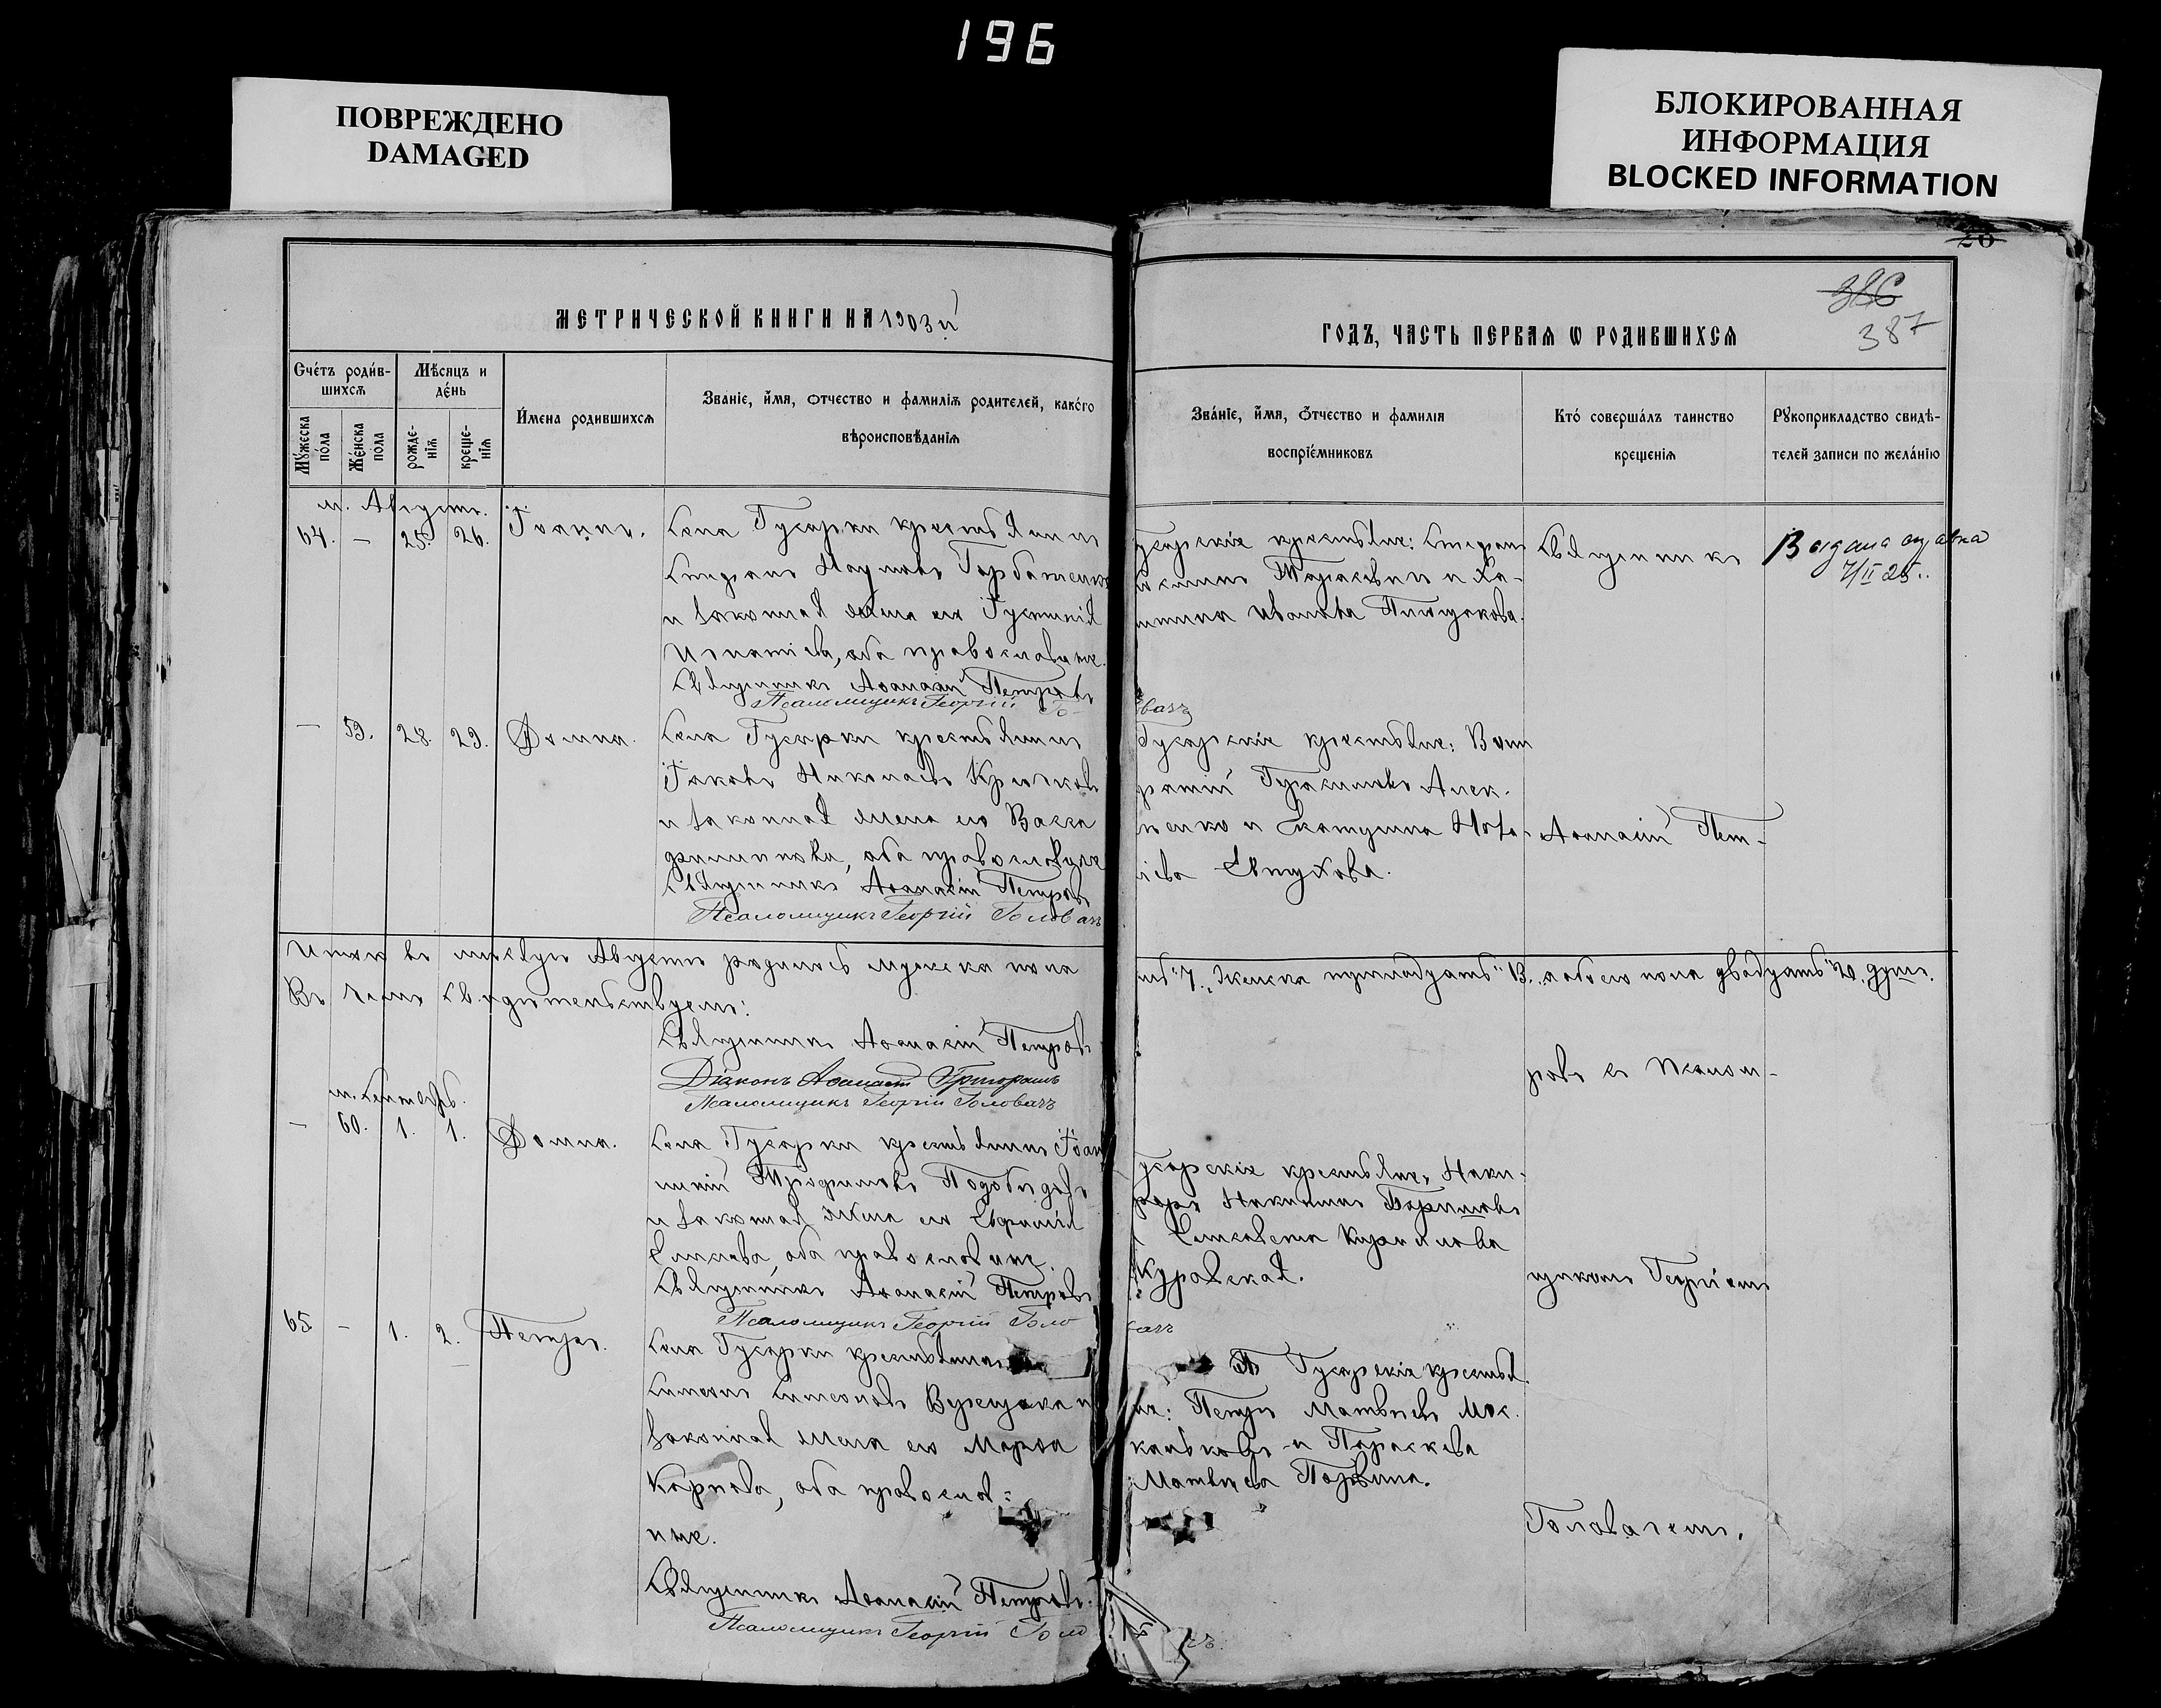 196
ПОВРЕЖДЕНО
DAMAGED
БЛОКИРОВАННАЯ
ИНФОРМАЦИЯ
BLOCKED INFORMATION
26
386
387
МЕТРИЧЕСКОЙ КНИГИ НА 1903й
ГОДЪ, ЧАСТЬ ПЕРВАЯ Ѡ РОДИВШИХСЯ
Счетъ родив-
шихся
Мѣсяцъ и
день
Мужеска
пола
Женска
пола
рожде-
нія
креще-
нія
Имена родившихся
Званіе, имя, отчество и фамилія родителей, какого
вѣроисповѣданія
Званіе, имя, отчество и фамилія
воспріемниковъ
Кто совершалъ таинство
крещенія
Рукоприкладство свидѣ-
телей записи по желанію
м. Августъ.
64. — 25. 26. Іоаннъ.
Села Гусарки крестьянинъ
Стефанъ Наумовъ Горбатенко
и законная жена его Іустинія
Игнатіева, оба православные.
Священникъ Аѳанасій Петровъ
Псаломщикъ Георгій Го-
вачъ
усарскіе крестьяне: Стефанъ
Тарасевичъ и Ха-
ритина Иванова
Священникъ
Выдана справка
7/II 25..
— 59. 28. 29. Домна.
Села Гусарки крестьянинъ
Іаковъ Николаевъ Крючковъ
и законная жена его Васса
Филиппова, оба православные
Священникъ Аѳанасій Петровъ
Псаломщикъ Георгій Головачъ
Гусарскіе крестьяне: Вони-
фатій Герасимовъ Алек-
сенко и Екатерина
Евтухова.
Аѳанасій Пет-
Итого въ мѣсяцѣ Августѣ родилось мужеска пола
мь „7„ женска тринадцать „13„ а обоего пола двадцать „20„ душъ.
Въ чемъ свидѣтельствуемъ:
Священникъ Аѳанасій Петровъ
Діаконъ Аѳанасій
Псаломщикъ Георгій Головачъ
ровъ съ псалом-
м. Сентябрь.
— 60. 1. 1. Домна.
Села Гусарки крестьянинъ Іоан-
никій Трофимовъ Подобѣдовъ
и законная жена его Евфимія
Елисеева, оба православные.
Священникъ Аѳанасій Петровъ
Псаломщикъ Георгій Голо
вачъ
усарскіе крестьяне, Ники-
форъ Никитинъ
и Елисавета Кириллова
Куровская.
щикомъ Георгіемъ
65 — 1. 2. Петръ.
Села Гусарки крестьянинъ
Симеонъ Симеоновъ и
законная жена его Марѳа
Карпова, оба православ=
ные.
Священникъ Аѳанасій Петровъ.
Псаломщикъ Георгій Голо
Гусарскіе крестья-
не: Петръ Матвѣевъ Мос-
кальковъ и Параскева
Матвѣева
Головачемъ.